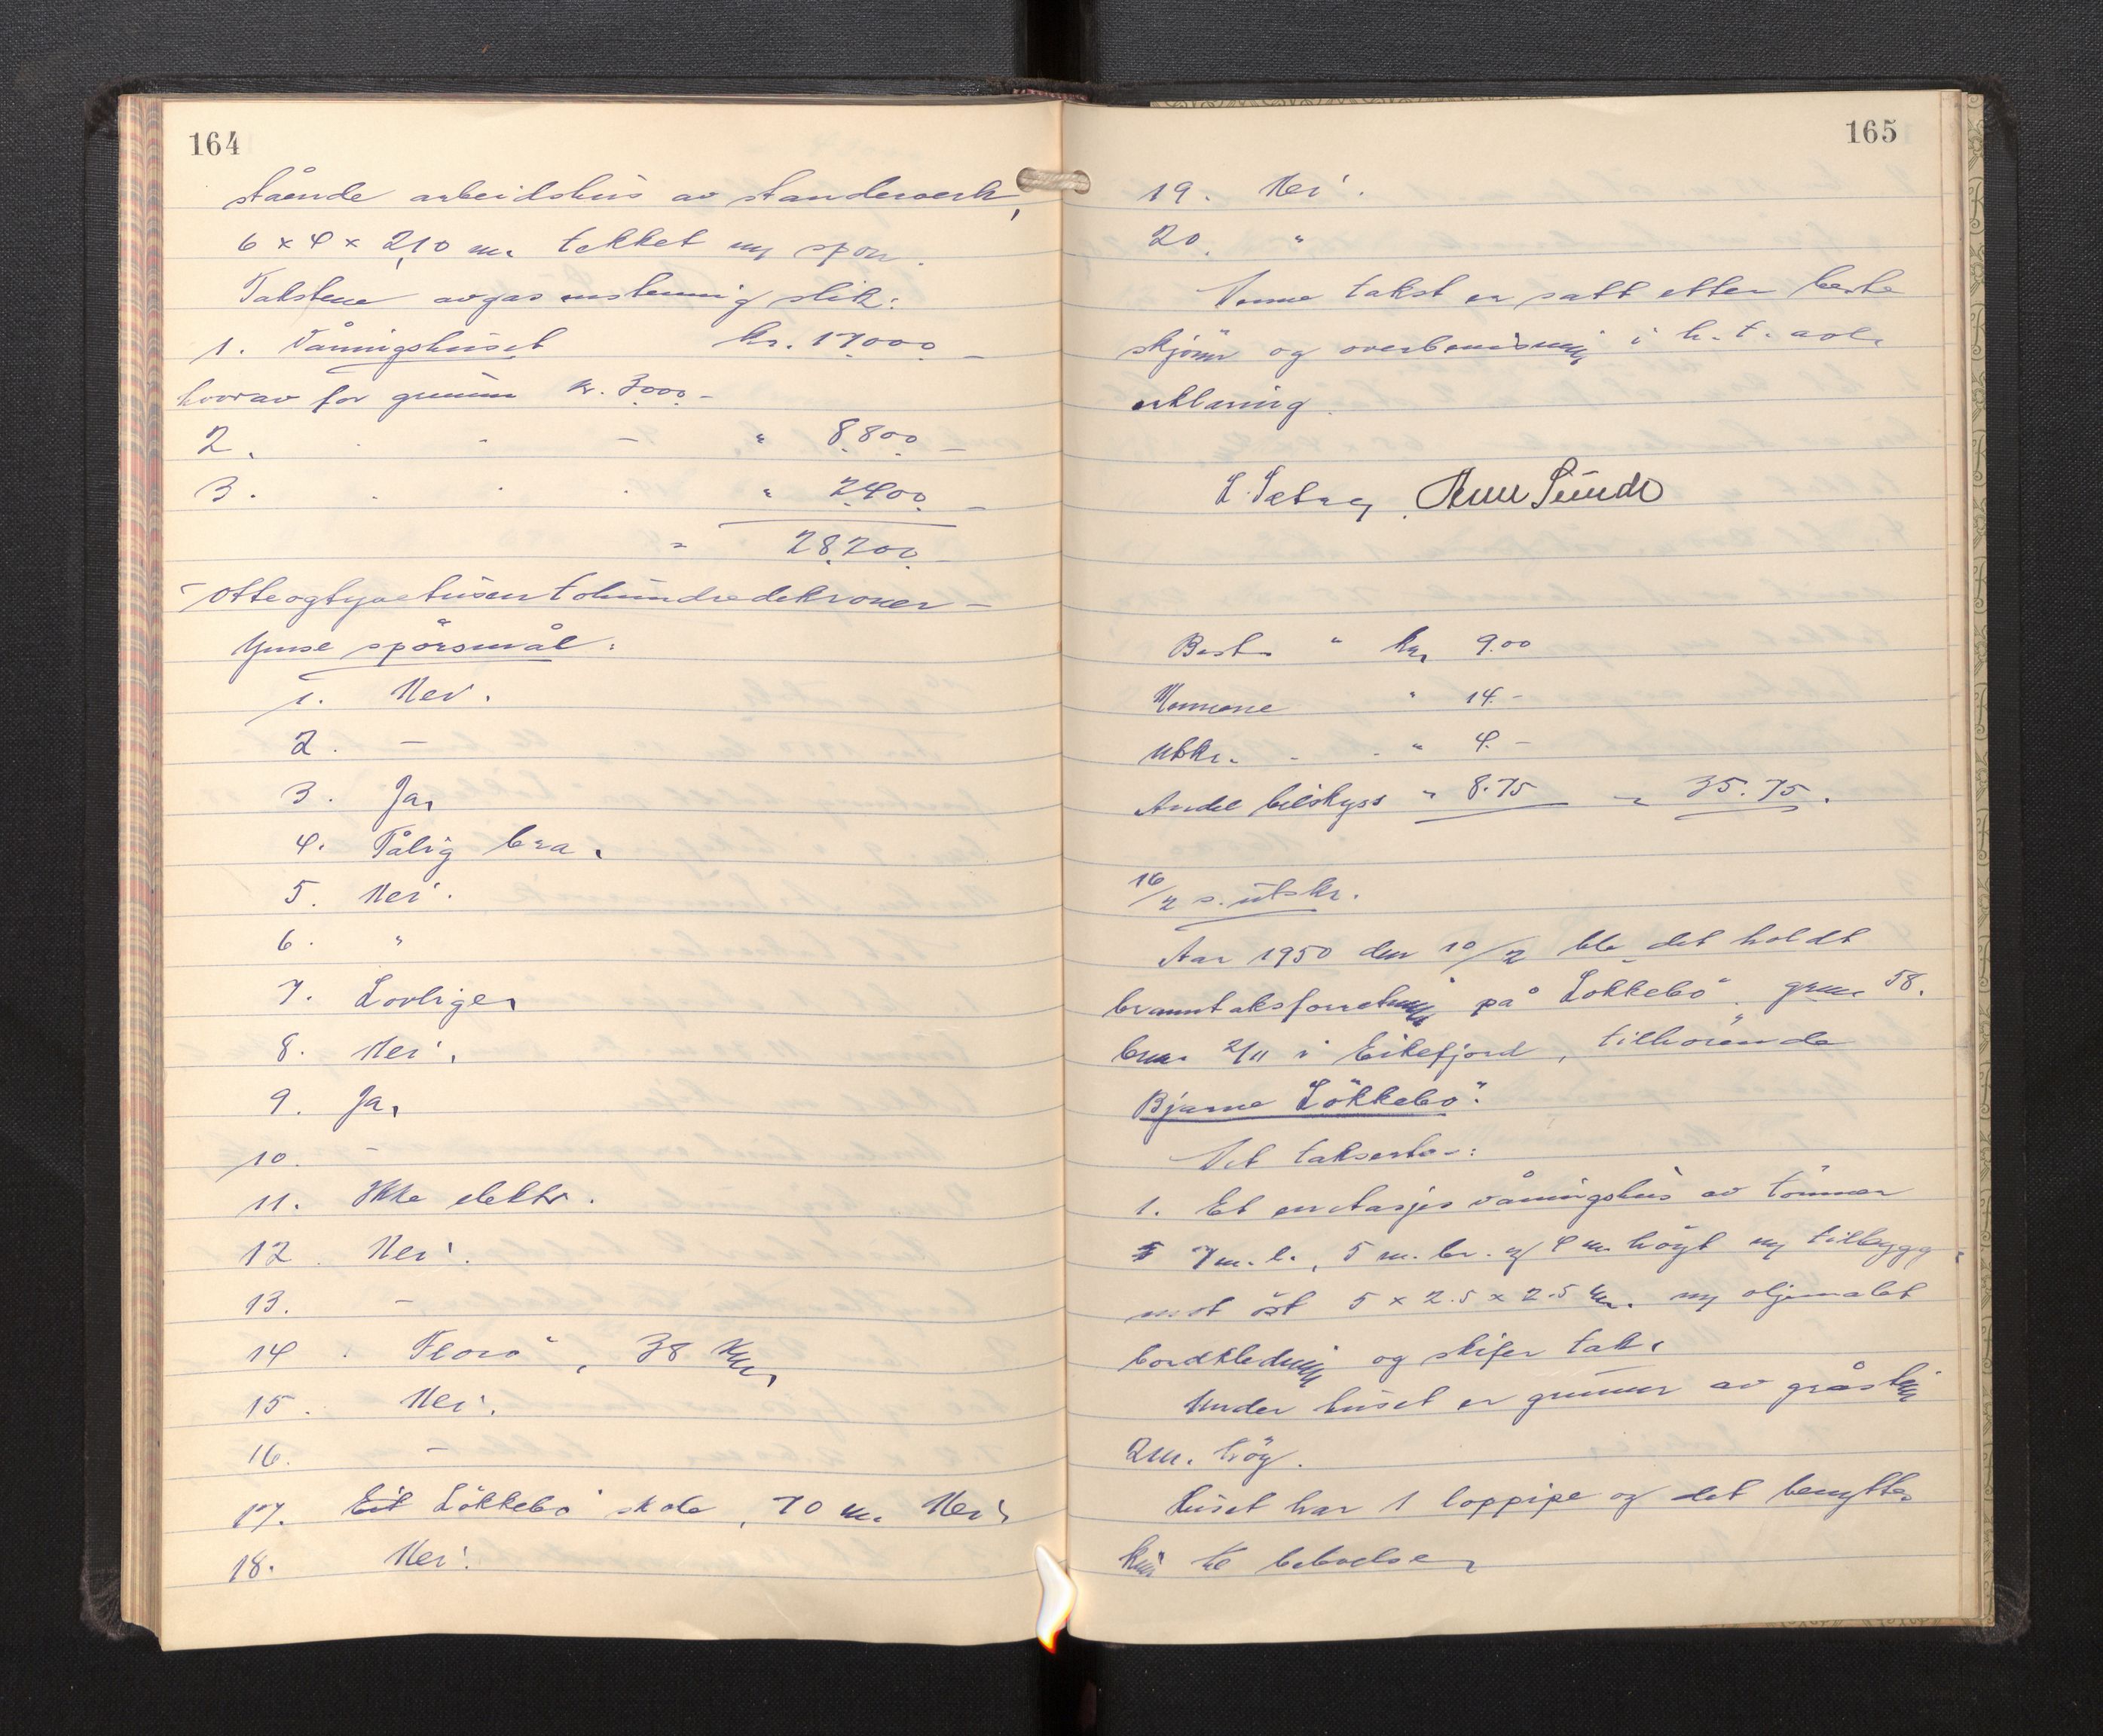 164
stående arbeidshus av standerverk,
6 x 4 x 2,10 m. tekket m/ spon.
Takstene avgas enstemmig slik:
1. Våningshuset kr. 17.000 -
hvorav for grunnm kr. 3000 -
2. . - - " 8.800 -
3. . . . " 2400 -
= 28.200 -
- Otteogtyvetusentohundredekroner -
Ymse spörsmål:
1. Nei.
2. -
3. Ja,
4. Tålig bra.
5. Nei.
6. "
7. Lovlige,
8. Nei.
9. Ja,
10. -
11. Ikke elektr.
12. Nei.
13. -
14. Florö, 38 km,
15. Nei.
16. -
17. Lökkebö skole, 70 m. Nei.
18. Nei.
165
19. Nei.
20. "
Denne takst er satt etter beste
skjönn og overbevisning i h. t. avl.
erklæring.
L. Sunde
Best. " kr, 9.00
Mennene " 14.-
Utskr. - . " 4.-
Andel bilskyss " 8.75 = 35.75.
16/2 s. utskr.
Aar 1950 den 10/2 ble det holdt
branntakstforretning på Lökkebö, grnr. 58.
brnr. 2/11 i Eikefjord, tilhörende
Bjarne Lökkebö.
Det takseres:
1. Et enetasjes våningshus av tömmer
7 m. l., 5 m. br. og 4 m. högt m/ tilbygg
mot öst 5 x 2.5 x 2.5 m. m/ oljemalet
bordkledning og skifer tak.
Under huset er grunnmr av gråstein
2 m. hög.
Huset har 1 loppipe og det benyttes
kun til beboelse,